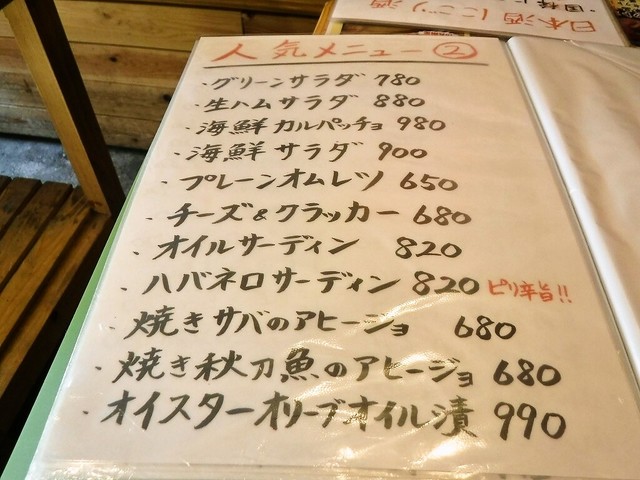 日本酒 にごり酒
人気メニュー②
・グリーンサラダ 780
・生ハムサラダ 880
・海鮮カルパッチョ 980
・海鮮サラダ 900
・プレーンオムレツ 650
・チーズ&クラッカー 680
・オイルサーディン 820
・ハバネロサーディン 820 ピリ辛旨!!
・焼きサバのアヒージョ 680
・焼き秋刀魚のアヒージョ 680
・オイスターオリーブオイル漬 990